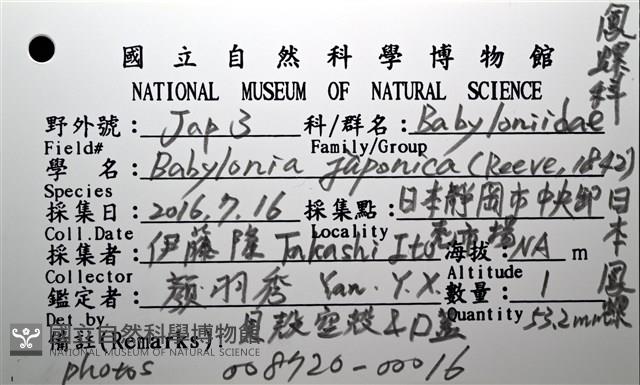 國立自然科學博物館
NATIONAL MUSEUM OF NATURAL SCIENCE
野外號: Jap 3 科/群名: Babyloniidae
Field# Family/Group
學 名: Babylonia japonica (Reeve, 1842)
Species
採集日: 2016.7.16 採集點: 日本靜岡市中央卸
Coll.Date Locality 売市場
採集者: 伊藤隆 Takashi Ito 海拔: NA m
Collector Altitude
鑑定者: 顏羽秀 Yan. Y.X. 數量: 1
Det by Quantity 53.2mm
備註(Remarks): 貝殼空殼&口蓋
photos 008720-00016
鳳螺科
日本鳳螺
國立自然科學博物館
NATIONAL MUSEUM OF NATURAL SCIENCE